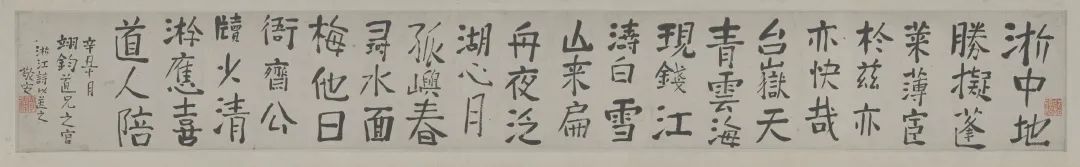 浙中地
勝擬蓬
萊薄宦
於茲亦
亦快哉
台嶽天
青雲海
現錢江
濤白雪
山来扁
舟夜泛
湖心月
孤嶼春
尋水面
梅他日
衙齊公
牘少清
應喜
道人陪
辛丑十月
翊鈞道兄之官
浙江詩以送之